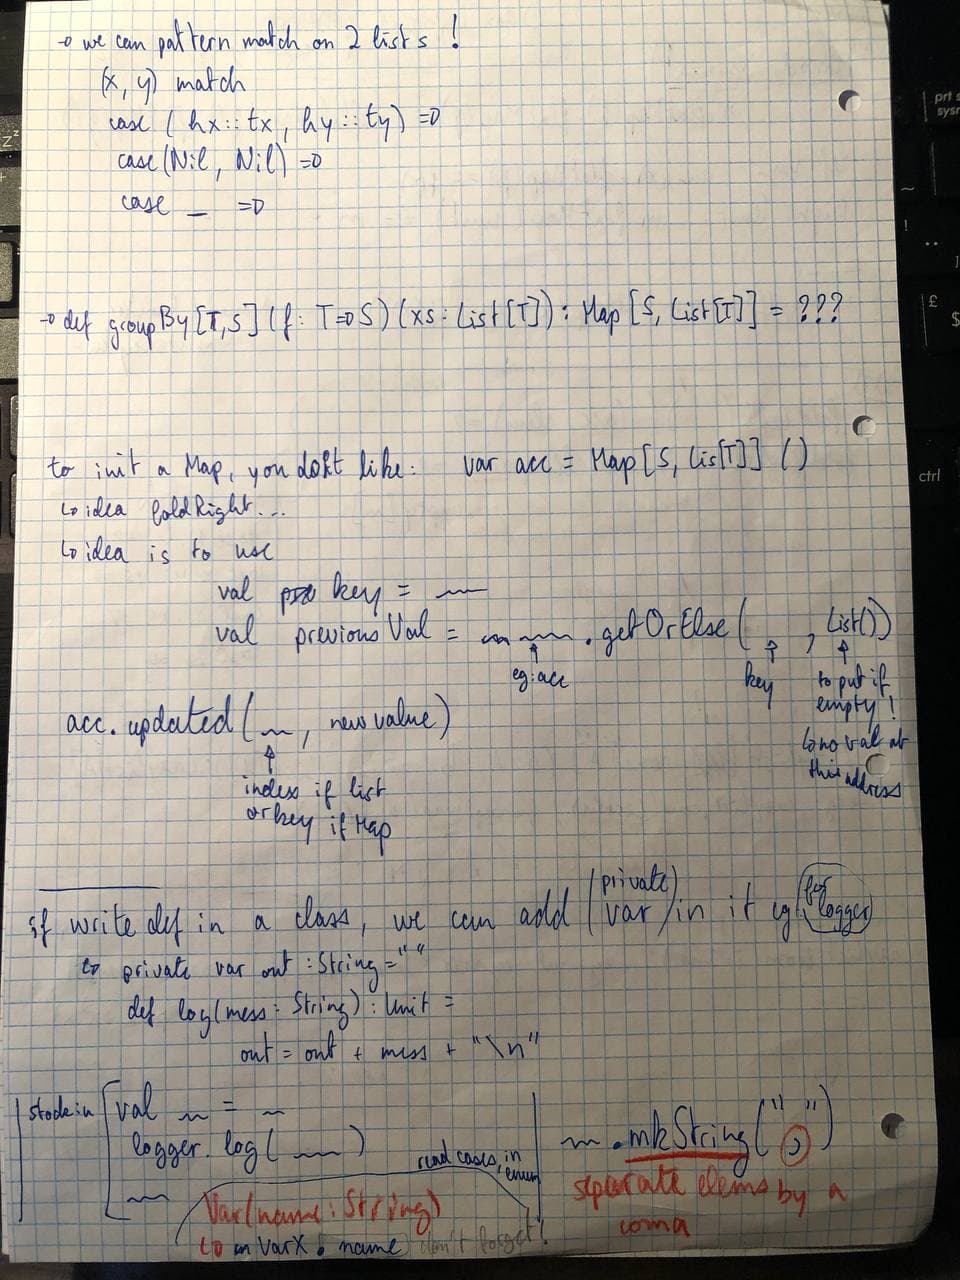 → we can pattern match on 2 lists !
(x, y) match
case ( hx :: tx , hy :: ty ) =>
case (Nil , Nil) =>
case _ =>
→ def groupBy [T,S] (f : T=>S) (xs : List[T]) : Map [S, List[T]] = ???
to init a Map, you do like : var acc = Map [S, List[T]] ()
↳ idea foldRight...
↳ idea is to use
val key = ~~
val previous Val = ~~ . getOrElse ( , List())
eg: acc
key
to put if
empty !
↳ no val at
this address
acc. updated ( ~ , new value)
index if list
or key if Map
if write def in a class, we can add (private) var in it eg for logger
↳ private var out : String = ""
def log (mess : String) : Unit =
out = out + mess + "\n"
stock in
val ~ = ~
logger. log ( ~~ )
read cases, in
enum
Var(name : String)
↳ Varx . name don't forget !
~ . mkString (" , ")
separate elems by a
coma
prt s
sysr
Z
~
!
£
$
ctrl